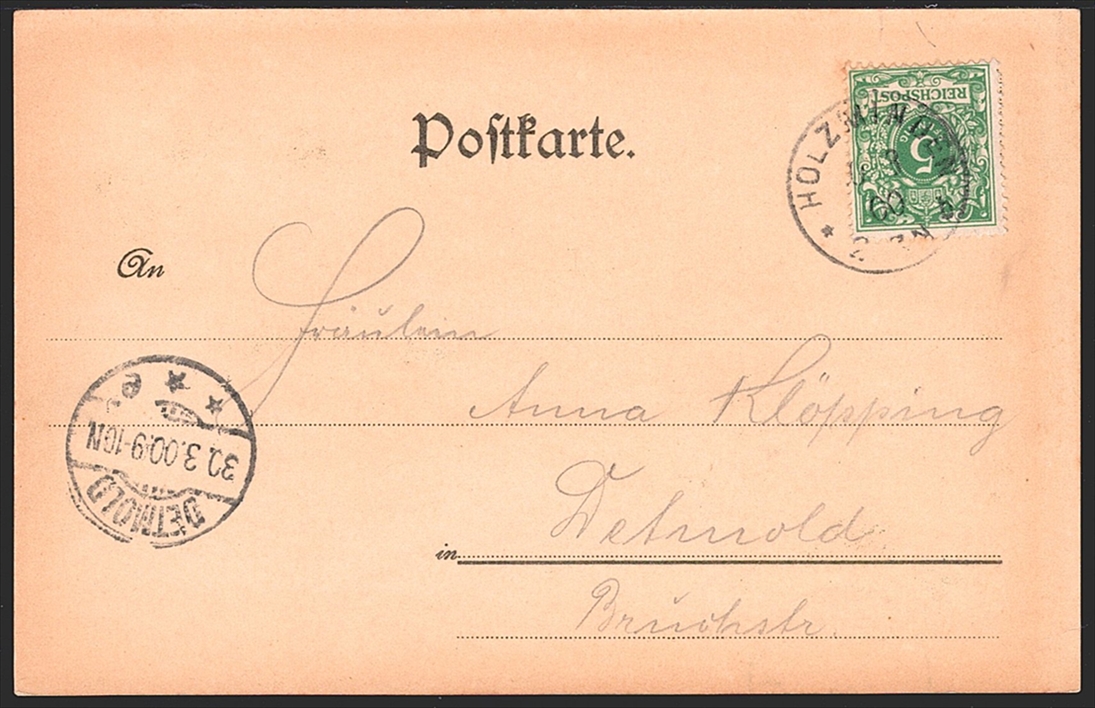 Postkarte.
REICHSPOST
5
HOLZMINDEN
An
Fräulein
Anna Klöpping
in Detmold
Bruchstr.
DETMOLD
30.3.00.9-10N